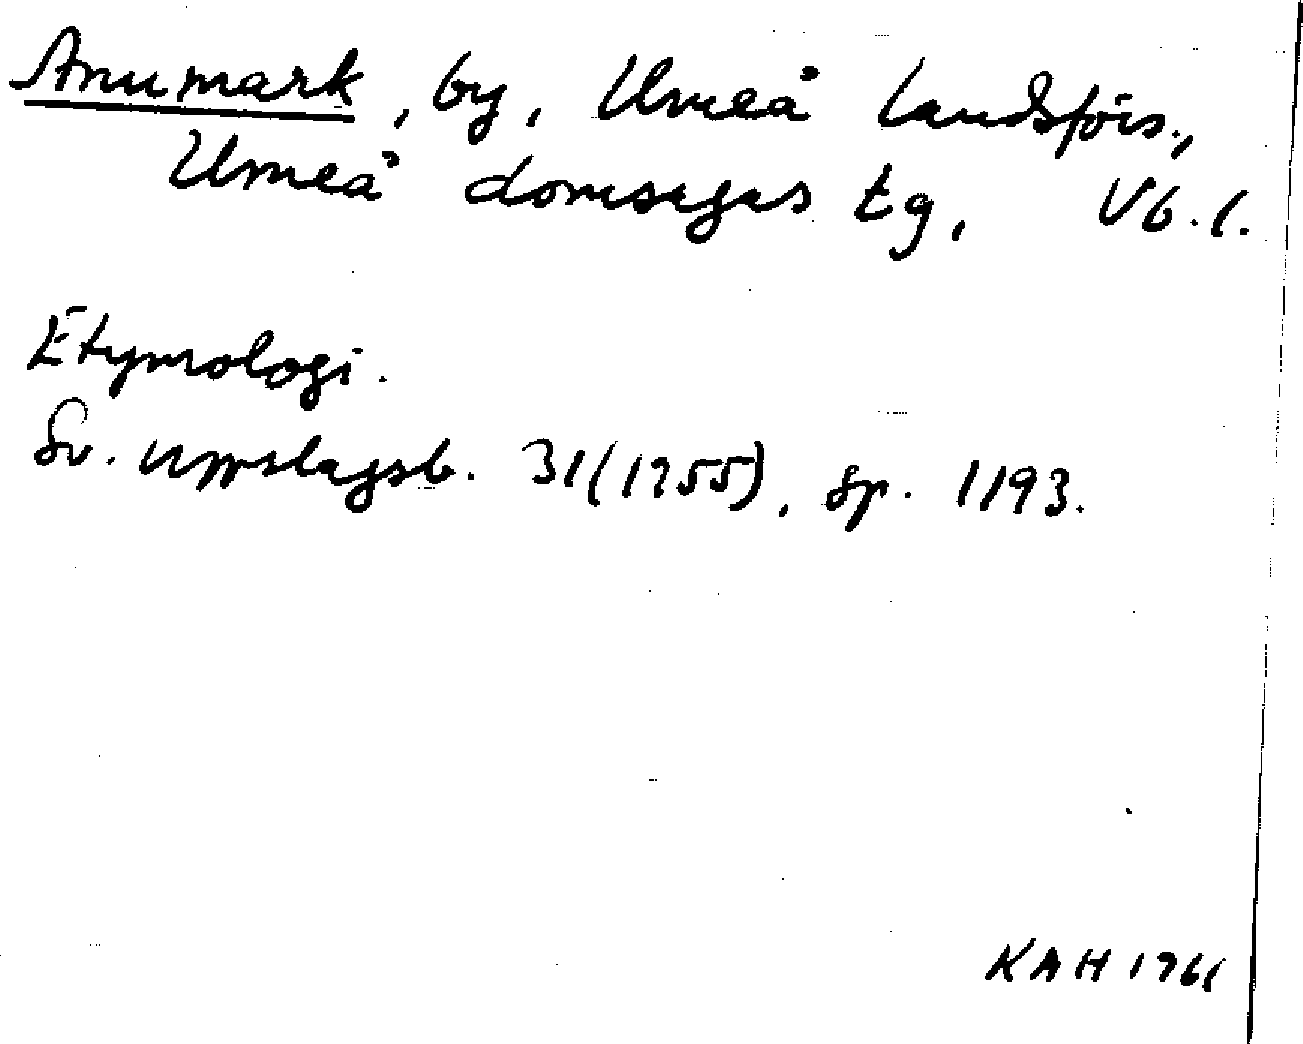 Anumark, by, Umeå landsförs.,
Umeå domsagas tg, Vb. l.
Etymologi.
Sv. uppslagsb. 31(1955), sp. 1193.
KAH 1961